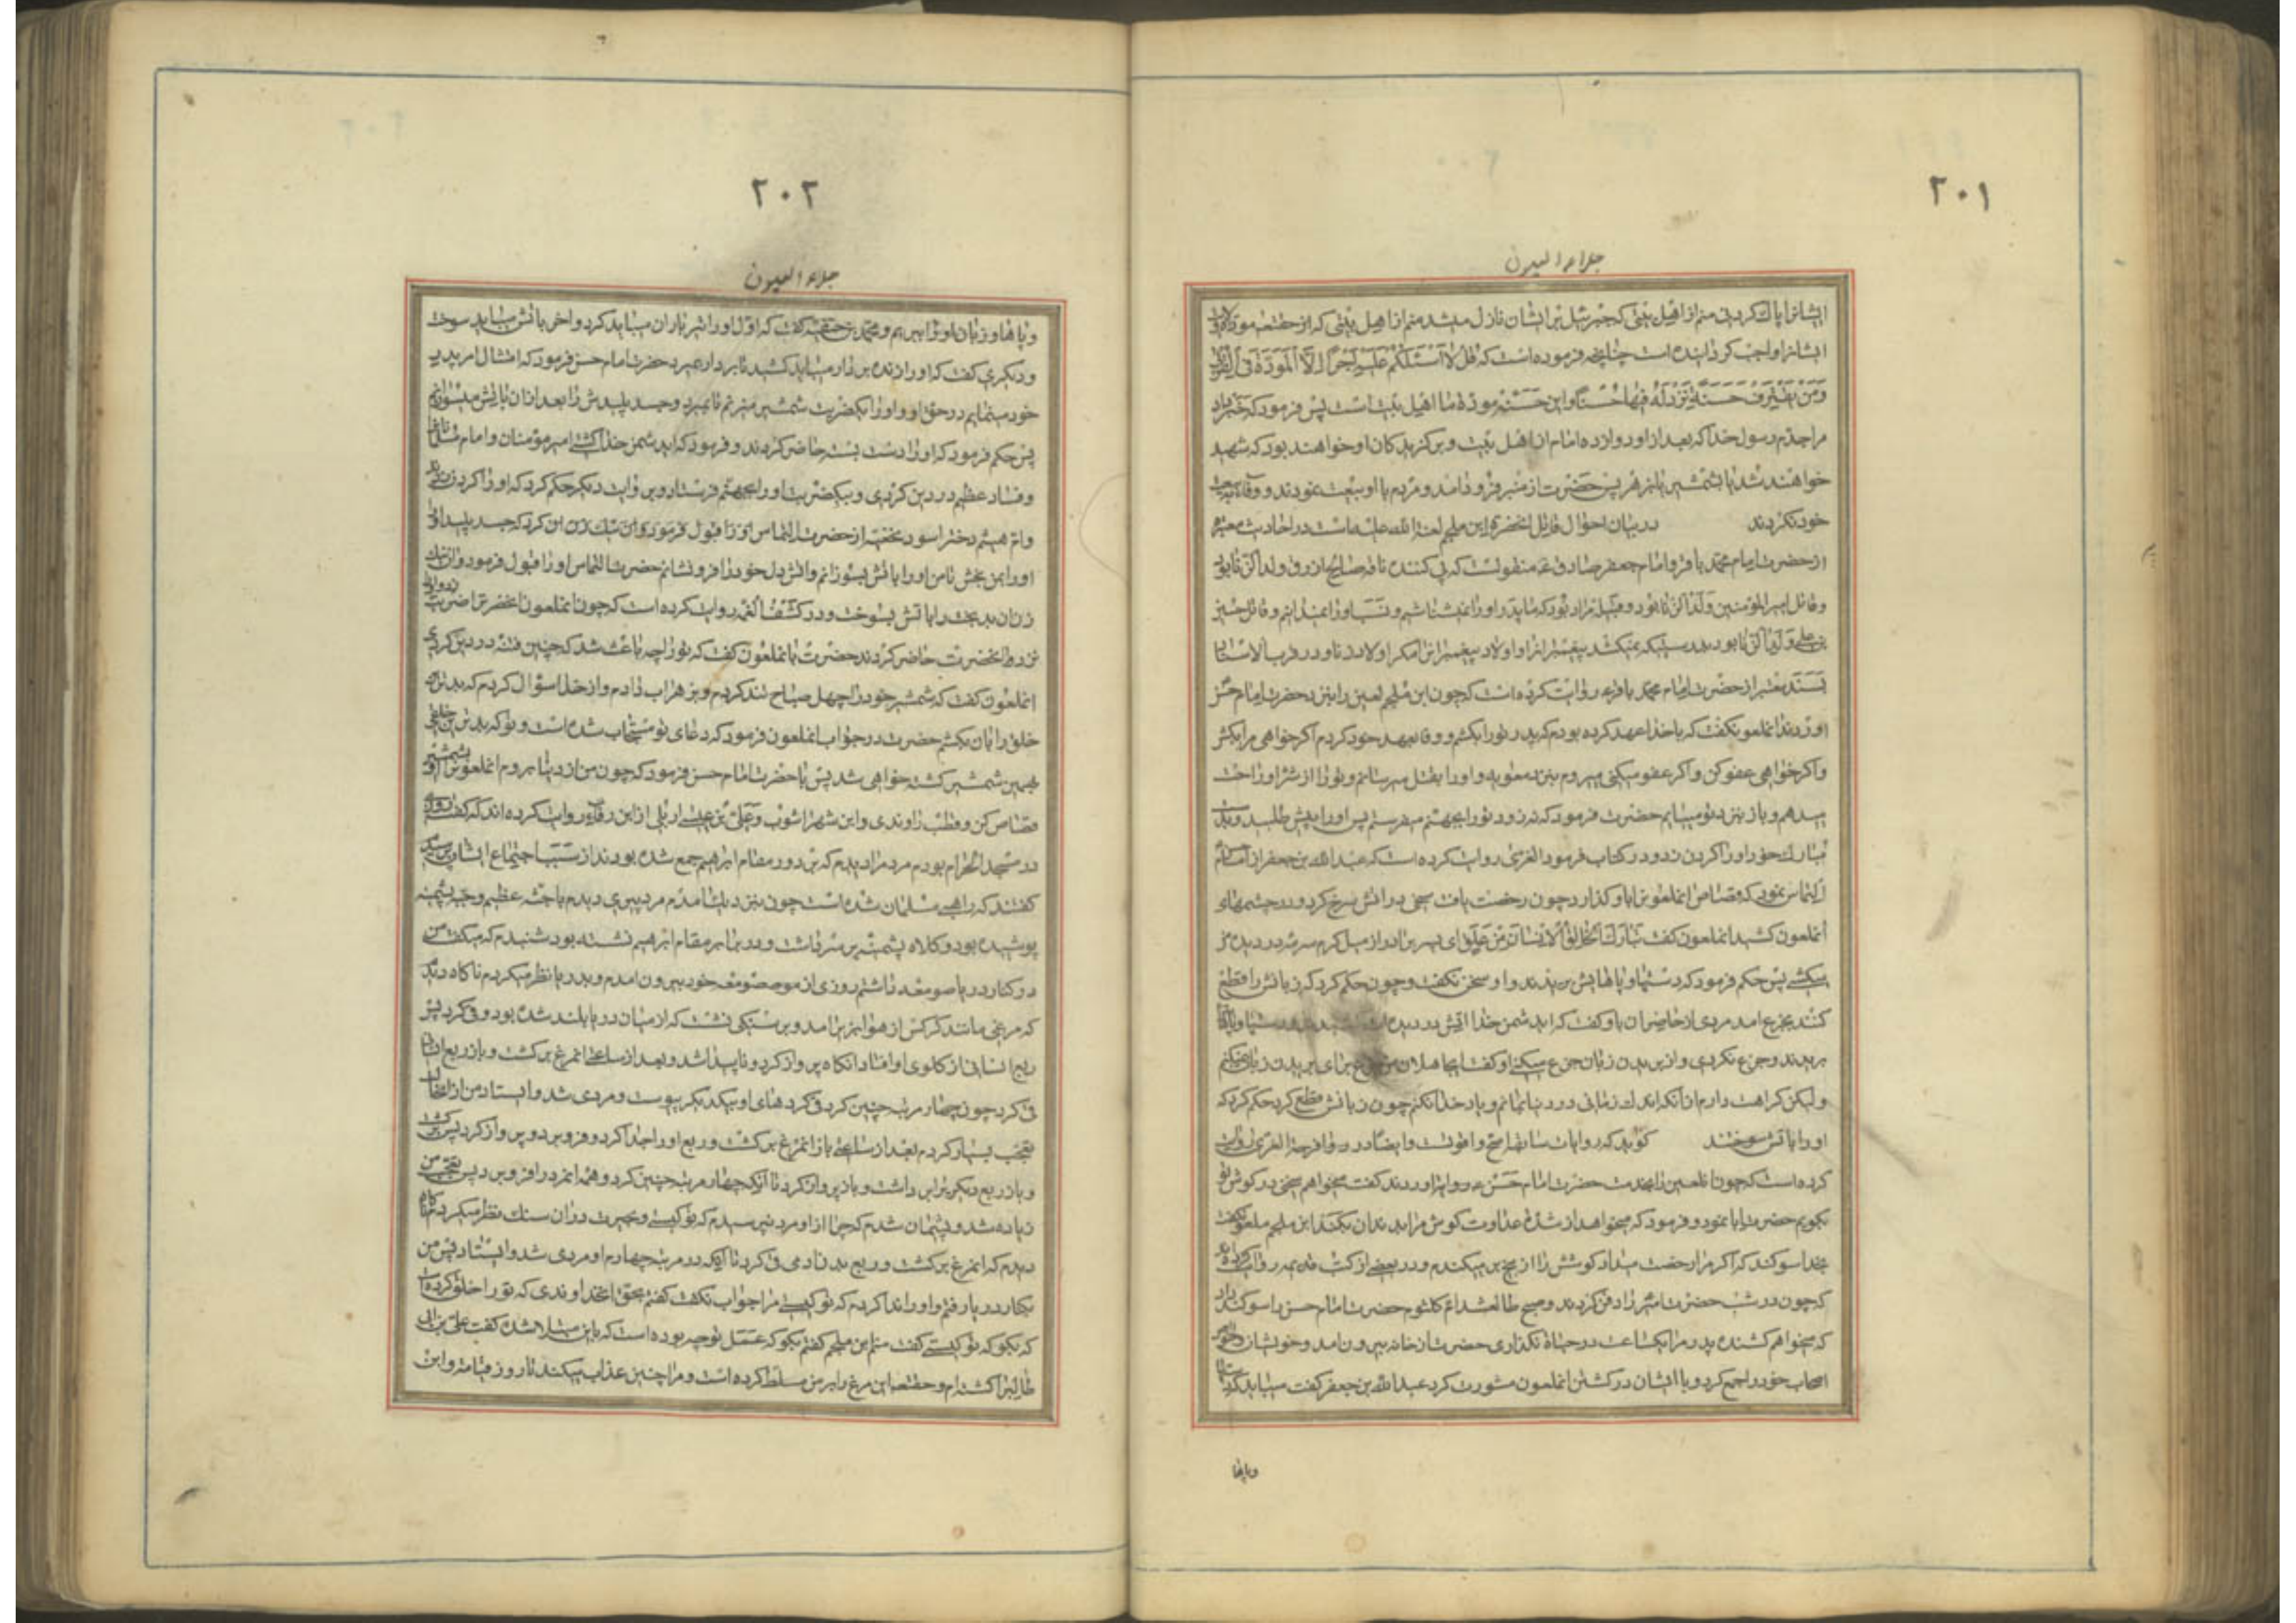 ٢٠١
جلاء العیون
ایشانرا پاک کردنی منم از اهل بیتی که جبرئیل بر ایشان نازل میشد منم از اهل بیتی که از حقتعالی مودة و ولایت
ایشانرا واجب کردانیده است چنانچه فرموده است که قل لا اسئلکم علیه اجرا الا المودة فی القربی
و من یقترف حسنة نزد له فیها حسنا و این حسنه مودة ما اهل بیت است پس فرمود که خبر داد
مرا جدم رسول خدا که بعد از او دوازده امام از اهل بیت و برکزیدکان او خواهند بود که شهید
خواهند شد یا بشمشیر یا بزهر پس حضرت از منبر فرود آمد و مردم با او بیعت نمودند و وفا به بیعت
خود نکردند در بیان احوال قاتل انحضرت ابن ملجم لعنة الله علیه است در احادیث معتبره
از حضرت امام محمد باقر و امام جعفر صادق ع منقولست که پی کننده ناقه صالح ازرق ولد الزنا بود
و قاتل امیر المؤمنین ولد الزنا بود و قبیله مراد بود که ما پدر او را نمیشناسیم و نسب او را نمیدانیم و قاتل حسین
بن علی ولد الزنا بود بدرستیکه نمیکشد پیغمبرانرا و اولاد پیغمبرانرا مکر اولاد زنا و در قرب الاسناد
بسند معتبر از حضرت امام محمد باقر ع روایت کرده است که چون ابن ملجم لعین را بنزد حضرت امام حسن
اوردند انملعون گفت که با خدا عهد کرده بودم که پدر تو را بکشم و وفا بعهد خود کردم اکر خواهی مرا بکش
و اکر خواهی عفو کن و اکر عفو میکنی میروم بنزد معویه و او را بقتل میرسانم و تو را از شر او راحت
میدهم و باز بنزد تو میایم حضرت فرمود که نه زود تو را بجهنم میفرستم پس او را پیش طلبید و بدست
مبارک خود او را کردن زد و در کتاب فرحة الغری روایت کرده است که عبد الله بن جعفر از امام
التماس نمود که قصاص انملعون را باو کذارد چون رخصت یافت میخی در اتش سرخ کرد و در چشمهای
انملعون کشید انملعون کفت تبارک الخالق الانسان من علق ای پسر برادر از میل کرم سرمه در دیده من
میکشی پس حکم فرمود که دستها و پاهایش بریدند و او سخن نکفت و چون حکم کرد که زبانش را قطع
کنند بجزع امد مردی از حاضران باو کفت که ای دشمن خدا اتش در دیده ات کشیدند و دستها و پاها
بریدند و جزع نکردی و از بریدن زبان جزع میکنی او کفت ای جاهلان من جزع برای بریدن زبان نمیکنم
ولیکن کراهت دارم از انکه اندک زمانی در دنیا بمانم و یاد خدا نکنم چون زبانش قطع کرد حکم کرد که
او را باتش سوختند کوید که روایات سابقه اصح و اقویست و ایضا در فرحة الغری روایت
کرده است که چون ان لعین را بخدمت حضرت امام حسن ع اوردند کفت میخواهم سخنی در کوش تو
بکویم حضرت ابا نمود و فرمود که میخواهد از شدة عداوت کوش مرا بدندان بکند ابن ملجم ملعون کفت
بخدا سوکند که اکر مرا رخصت میداد کوشش را از بیخ بر میکندم و در بعضی از کتب قدیمه روایت کرده اند
که چون در شب حضرت امیر را دفن کردند و صبح طالع شد ام کلثوم حضرت امام حسن را سوکند داد
که میخواهم کشنده پدر مرا یکساعت در حیاة نکذاری حضرت از خانه بیرون امد و خویشان و
اصحاب خود را جمع کرد و با ایشان در کشتن انملعون مشورت کرد عبد الله بن جعفر کفت میباید که دستها
و پاها
٢٠٢
جلاء العیون
و پاها و زبان او را ببریم و محمد بن حنفیه کفت که اول او را تیر باران میباید کرد و اخر باتش میباید سوخت
و دیکری کفت که او را زنده بر دار میباید کشید تا بر دار بمیرد حضرت امام حسن فرمود که امتثال امر پدر
خود مینمایم در حق او و او را یکضربت شمشیر میزنم تا بمیرد و جسد پلیدش را بعد از ان باتش میسوزانم
پس حکم فرمود که او را دست بسته حاضر کردند و فرمود که ای دشمن خدا کشتی امیر مؤمنان و امام مسلمانان را
و فساد عظیم در دین کردی و بیکضربت او را بجهنم فرستاد و بروایت دیکر حکم کرد که او را کردن زدند
و ام هیثم دختر اسود نخعیه از حضرت التماس او را قبول فرمود و ان نیک زن ان کرد که جسد پلید
او را بمن بخش تا من او را باتش بسوزانم و اتش دل خود را فرو نشانم حضرت التماس او را قبول فرمود و ان نیک
زنان بدبخت را باتش بسوخت و در کشف الغمه روایت کرده است که چون انملعون انحضرت را ضربت زد و او را
نزد انحضرت حاضر کردند حضرت بانملعون کفت که تو را چه باعث شد که چنین فتنه در دین کردی
انملعون کفت که شمشیر خود را چهل صباح تند کردم و بزهر اب دادم و از خدا سؤال کردم که بدترین
خلق را بان بکشم حضرت در جواب انملعون فرمود که دعای تو مستجاب شده است و تو که بدترین خلقی
بهمین شمشیر کشته خواهی شد پس با حضرت امام حسن فرمود که چون من از دنیا بروم انملعون را بشمشیر او
قصاص کن و قطب راوندی و ابن شهراشوب و علی بن عیسی اربلی از ابن رقا روایت کرده اند که کفت روزی
در مسجد الحرام بودم مردم را دیدم که بر دور مقام ابراهیم جمع شده بودند از سبب اجتماع ایشان پرسیدم
کفتند که راهبی مسلمان شده است چون بنزدیک امدم مرد پیری دیدم با جثه عظیم و جبه پشمینه
پوشیده بود و کلاه پشمینه بر سر داشت و در برابر مقام ابراهیم نشسته بود شنیدم که میکفت من
در کنار دریا صومعه داشتم روزی از صومعه خود بیرون امدم و بدریا نظر میکردم ناکاه دیدم
که مرغی مانند کرکس از هوا بزیر امد و بر سنکی نشست که از میان دریا بلند شده بود و قی کرد پس
ربع انسانی از کلوی او افتاد انکاه پرواز کرد و ناپیدا شد و بعد از ساعتی انمرغ برکشت و باز ربع انسانی
قی کرد چون چهار مرتبه چنین کرد قی کردهای او بیکدیکر پیوست و مردی شد و ایستاد من از انحال
تعجب بسیار کردم بعد از ساعتی باز انمرغ برکشت و ربع او را جدا کرد و فرو برد و پرواز کرد پس برکشت
و باز ربع دیکر برا بر داشت و باز پرواز کرد تا انکه چهار مرتبه چنین کرد و همه انمرد را فرو برد پس تعجب من
زیاده شد و پشیمان شدم که چرا از او مرد نپرسیدم که تو کیستی و بحیرت در ان سنک نظر میکردم ناکاه
دیدم که انمرغ برکشت و ربع بدن ادمی قی کرد تا انکه در مرتبه چهارم او مردی شد و ایستاد پس من
بکنار دریا رفتم و او را ندا کردم که تو کیستی مرا جواب نکفت کفتم بحق انخداوندی که تو را خلق کرده است
که بکو که تو کیستی کفت منم ابن ملجم کفتم بکو که عمل تو چه بوده است که باین مبتلا شده کفت علی بن ابی
طالب را کشته ام و حقتعالی این مرغ را بر من مسلط کرده است و مرا چنین عذاب میکند تا روز قیامت و این